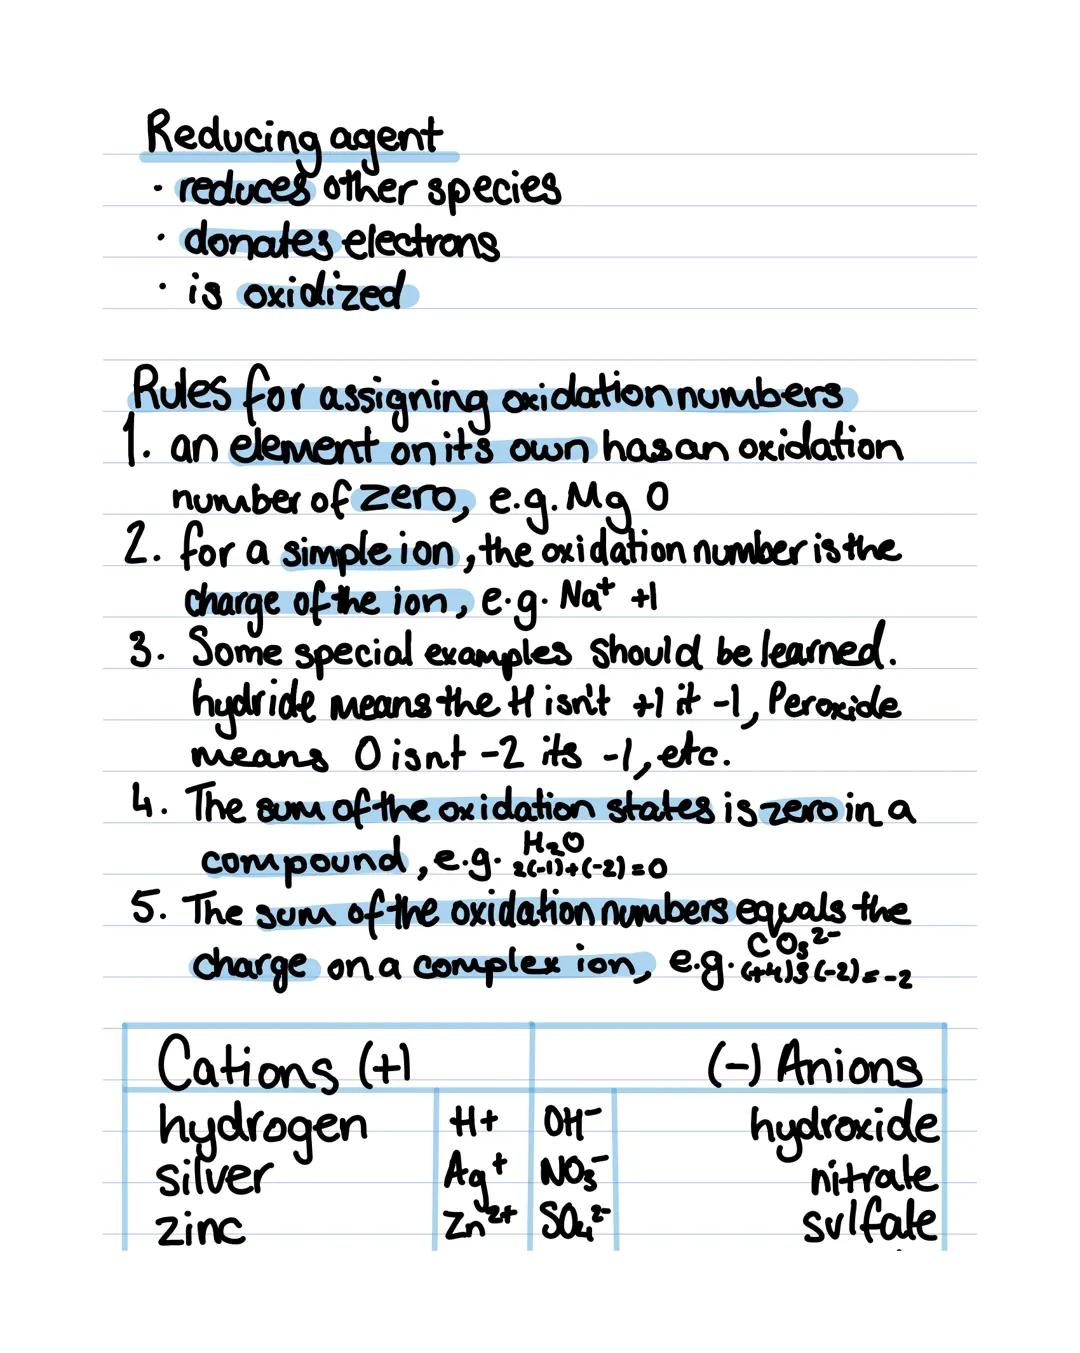 Reducing agent
· reduces other species
· donates electrons
· is oxidized
Rules for assigning oxidation numbers
1. an element on its own has an oxidation
number of zero, e.g. Mg 0
2. for a simple ion, the oxidation number is the
charge of the ion, e.g. Na⁺ +1
3. Some special examples should be learned.
hydride means the H isn't +1 it -1, Peroxide
means O isnt -2 its -1, etc.
4. The sum of the oxidation states is zero in a
compound, e.g. H₂O
2(-1)+(-2)=0
5. The sum of the oxidation numbers equals the
charge on a complex ion, e.g. CO₃²⁻
(+4)3(-2)=-2
Cations (+) (-) Anions
hydrogen H+ OH⁻ hydroxide
silver Ag⁺ NO₃⁻ nitrate
zinc Zn²⁺ SO₄²⁻ sulfate